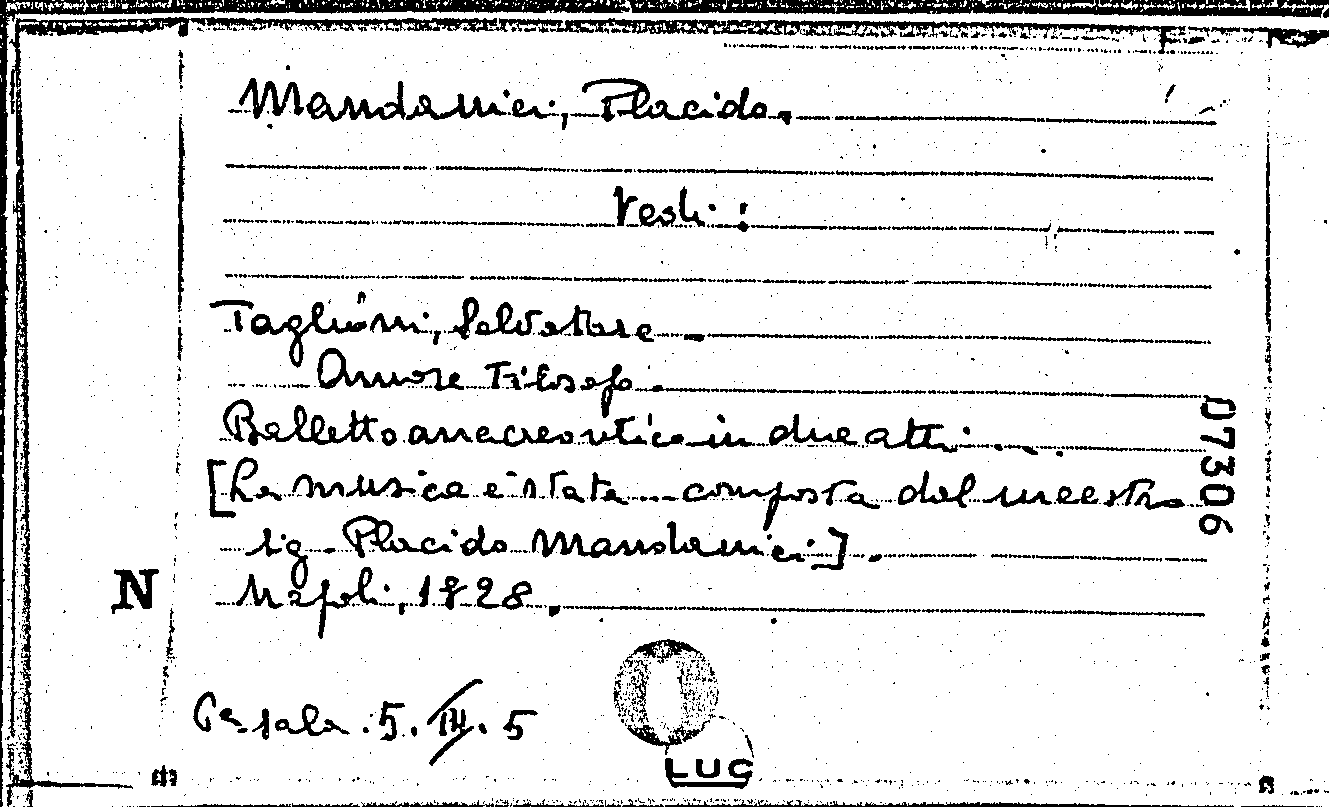 Mandanici, Placido.
Vedi:
Taglioni, Salvatore.
Amore Filosofo.
Balletto anacreontico in due atti....
[La musica è stata ... composta dal maestro
sig. Placido Mandanici].
Napoli, 1828.
N
D7306
Ca sala. 5. IV. 5
LUC